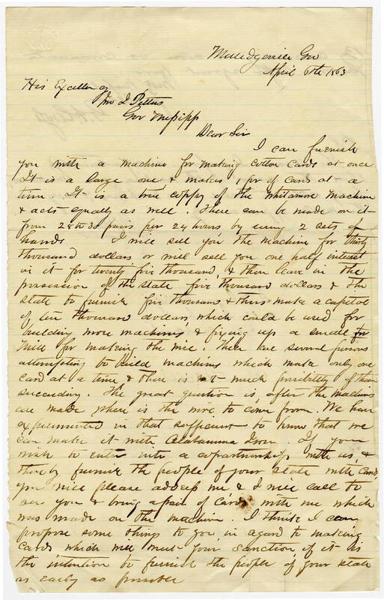 Milledgeville Geo
April 6th 1863
His Excellency
Jno J Pettus
Gov Missipp
Dear Sir
I can furnish
you with a machine for making cotton cards at once
It is a large one & makes 1 pr of cards at a
time. It is a true coppy of the Whitamore Machine
& acts equally as well. There can be made on it
from 28 to 30 pairs per 24 hours by using 2 sets of
hands I will sell you the machine for thirty
thousand dollars or will sell you one half interest
in it for twenty five thousand, & then leave in the
possession of the State five thousand dollars & the
State to furnish five thousand & thus make a capitol
of ten thousand dollars which could be used for
building more machines & fixing up a small
Mill for making the wire. There are several persons
attempting to build machines which make only one
card at a time & there is not much possibility of their
succeeding. The great question is, after the machines
are made where is the wire to come from. We have
experimented in that sufficient to know that we
can make it with Alabamma Iron If you
wish to enter into a copartnership with us, &
thereby furnish the people of your state with cards
you will please address me & I will call to
see you & bring a pair of cards with me which
was made on the machine. I think I can
propose some things to you in regard to making
cards which will meet your sanction, if it is
the intention to furnish the people of your state
as early as possible